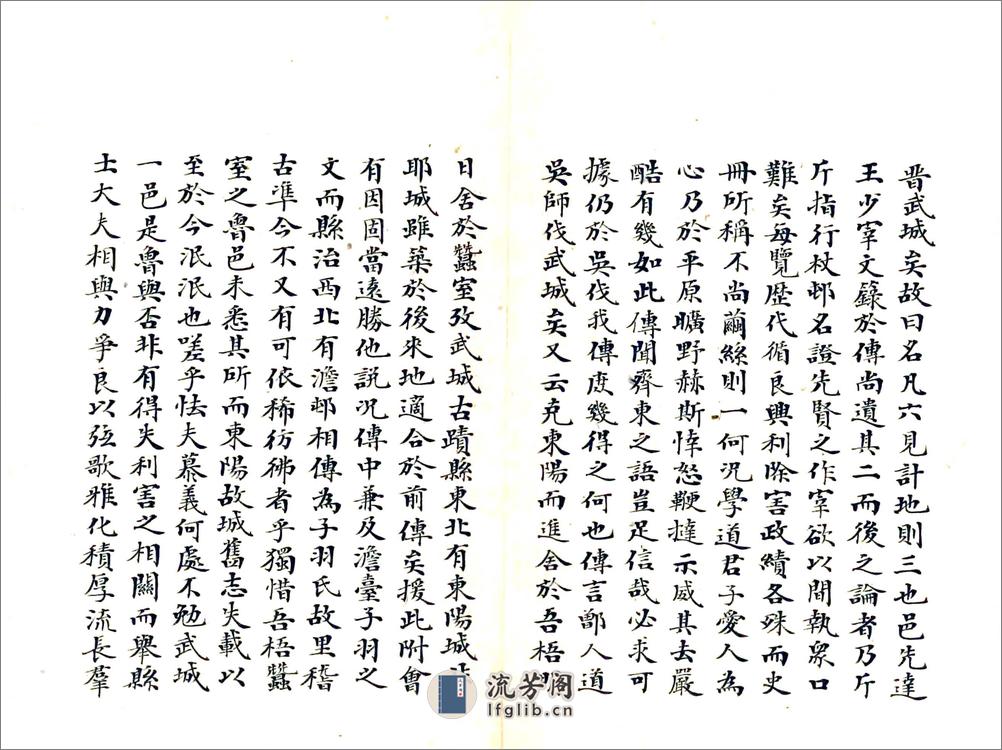 晋武城矣故曰名凡六見計地則三也邑先達
王少宰文錄於傳尚遺其二而後之論者乃斤
斤指行杖邨名證先賢之作宰欲以間執眾口
難矣每覽歷代循良興利除害政績各殊而史
冊所稱不尚繭絲則一何況學道君子愛人為
心乃於平原曠野赫斯悻怒鞭撻示威其去嚴
酷有幾如此傳聞齊東之語豈足信哉必求可
據仍於吳伐我傳庶幾得之何也傳言鄫人道
吳師伐武城矣又云克東陽而進舍於吾梧明
日舍於蠶室攷武城古蹟縣東北有東陽城
耶城雖築於後來地適合於前傳矣援此附會
有因固當遠勝他説況傳中兼及澹臺子羽之
文而縣治西北有澹邨相傳為子羽氏故里稽
古準今不又有可依稀彷彿者乎獨惜吾梧蠶
室之魯邑未悉其所而東陽故城舊志失載以
至於今泯泯也嗟乎怯夫慕義何處不勉武城
一邑是魯與否非有得失利害之相關而舉縣
士大夫相與力爭良以弦歌雅化積厚流長羣
流芳阁
lfglib.cn